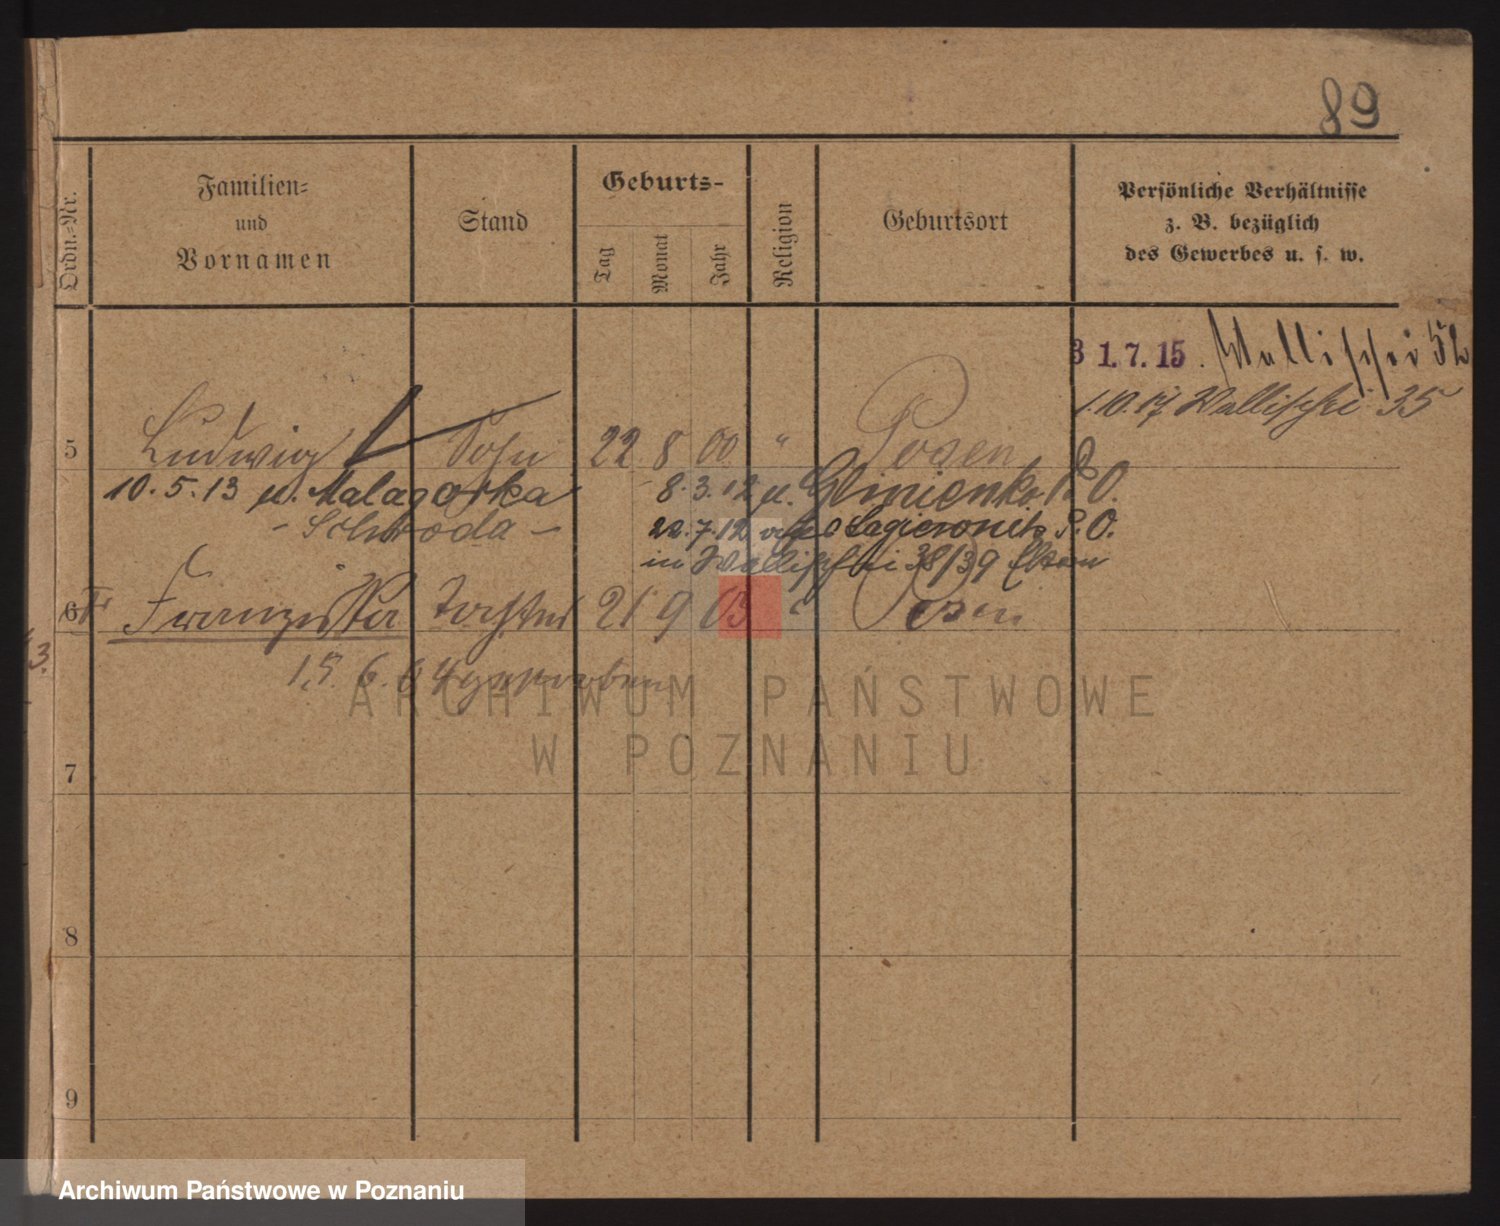 89
Ordn.-Nr.
Familien-
und
Vornamen
Stand
Geburts-
Tag
Monat
Jahr
Religion
Geburtsort
Persönliche Verhältnisse
z. B. bezüglich
des Gewerbes u. s. w.
31.7.15. Wallischei 52
1.10.17 Wallischei 35
5 Ludwig Sohn 22 8 00 " Posen
10.5.13 n. Malagorka 8.3.12 n. P. O.
- Schroda - 22.7.12 P. O.
in Wallischei 38/39
6 Franziska Tochter 21 9 03 " Posen
3.
15.6.04 gestorben
ARCHIWUM PAŃSTWOWE
W POZNANIU
7
8
9
Archiwum Państwowe w Poznaniu